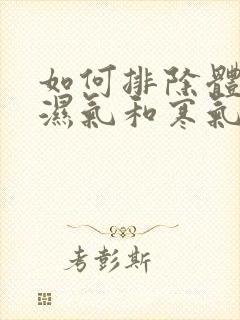 如何排除體
濕氣和寒氣
考彭斯